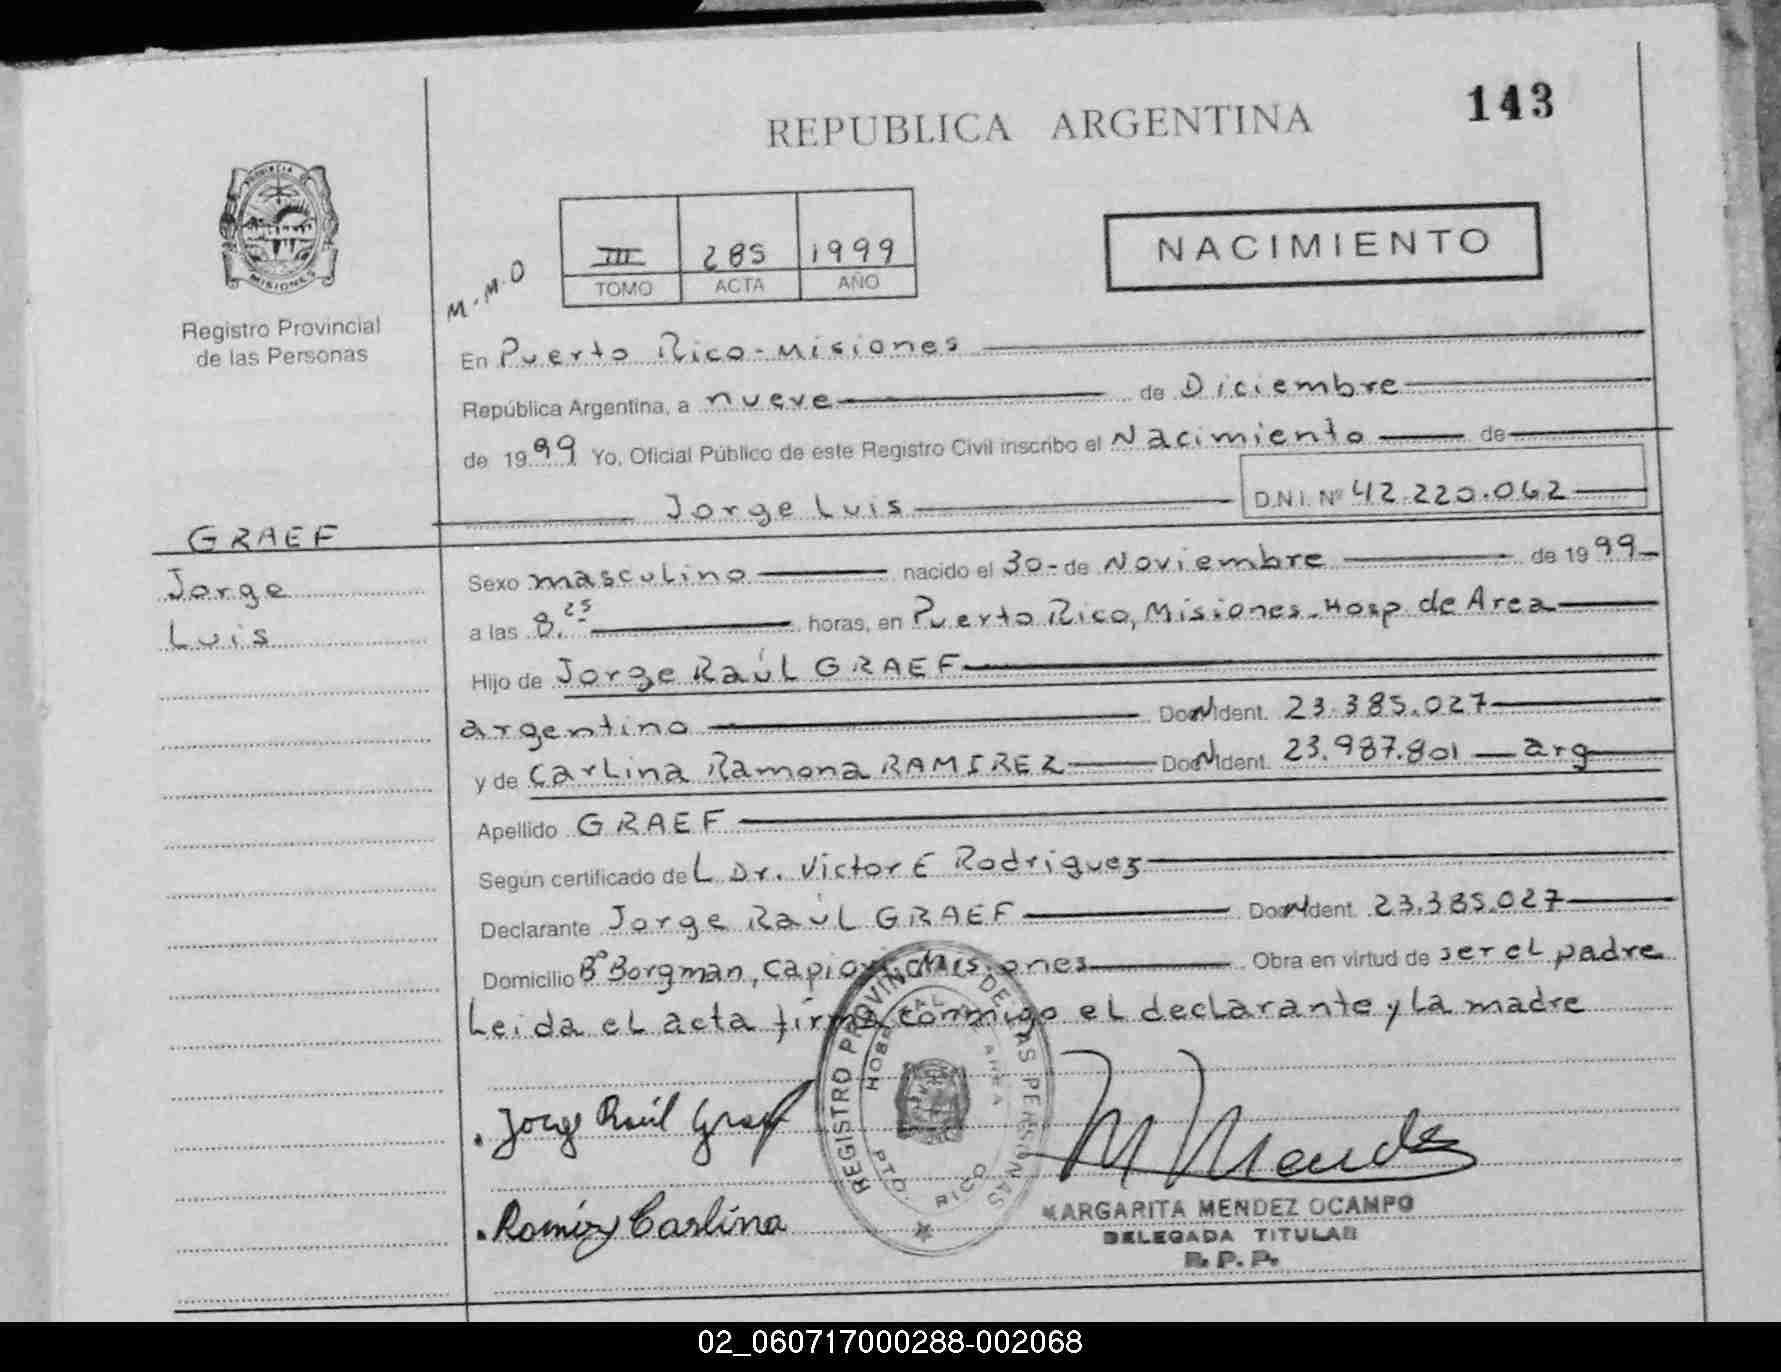 143
REPUBLICA ARGENTINA
PROVINCIA DE
MISIONES
Registro Provincial
de las Personas
M.M.O
III 285 1999
TOMO ACTA AÑO
NACIMIENTO
En Puerto Rico - Misiones
República Argentina, a nueve de Diciembre
de 1999 Yo, Oficial Público de este Registro Civil inscribo el Nacimiento de
Jorge Luis D.N.I. Nº 42.220.062
GRAEF
Jorge
Luis
Sexo masculino nacido el 30 - de Noviembre de 1999
a las 8.25 horas, en Puerto Rico, Misiones - Hosp. de Area
Hijo de Jorge Raúl GRAEF
argentino Doc. Ident. 23.385.027
y de Carlina Ramona RAMIREZ Doc. Ident. 23.987.801 — arg
Apellido GRAEF
Según certificado del Dr. Victor E Rodriguez
Declarante Jorge Raúl GRAEF Doc. Ident. 23.385.027
Domicilio Bº Borgman, Capiovi Misiones Obra en virtud de ser el padre
Leida el acta firma conmigo el declarante y la madre
REGISTRO PROVINCIAL DE LAS PERSONAS
PTO. RICO
Jorge Raúl Graef
M Mendez
Ramírez Carlina
MARGARITA MENDEZ OCAMPO
DELEGADA TITULAR
R. P. P.
02_060717000288-002068